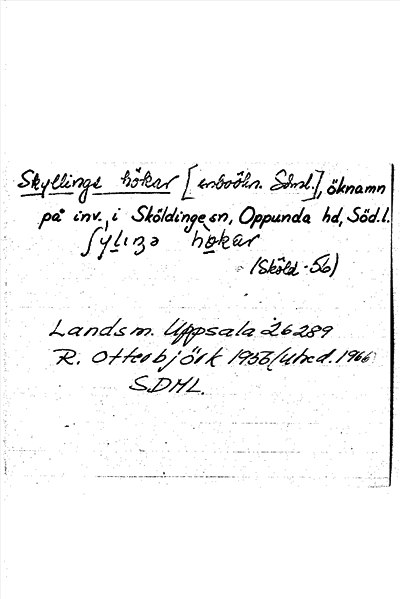 Skyllinge hökar [inboökn. Sdml.], öknamn
på inv. i Sköldinge sn, Oppunda hd, Söd.l.
ʃyliŋə hökar
(Sköld -56)
Landsm. Uppsala 26289
R. Otterbjörk 1956/utred. 1966
SDML.